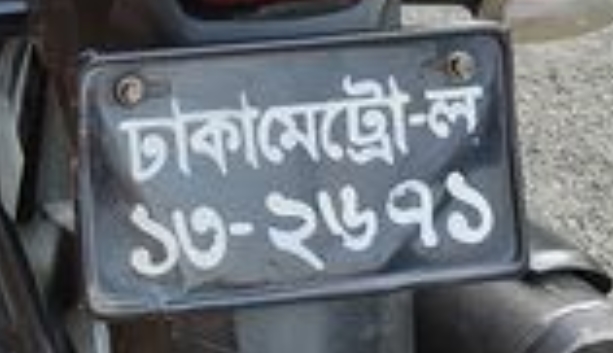 ঢাকামেট্রো-ল
১৩-২৬৭১